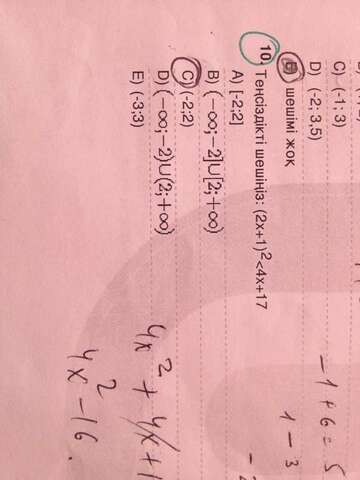 C) (-1; 3)
D) (-2; 3,5)
E) шешімі жоқ
10. Теңсіздікті шешіңіз: (2x+1)²<4x+17
A) [-2;2]
B) (−∞;−2]∪[2;+∞)
C) (-2;2)
D) (−∞;−2)∪(2;+∞)
E) (-3;3)
-1+6=5
1-3
4x²+4x+1
4x²-16.